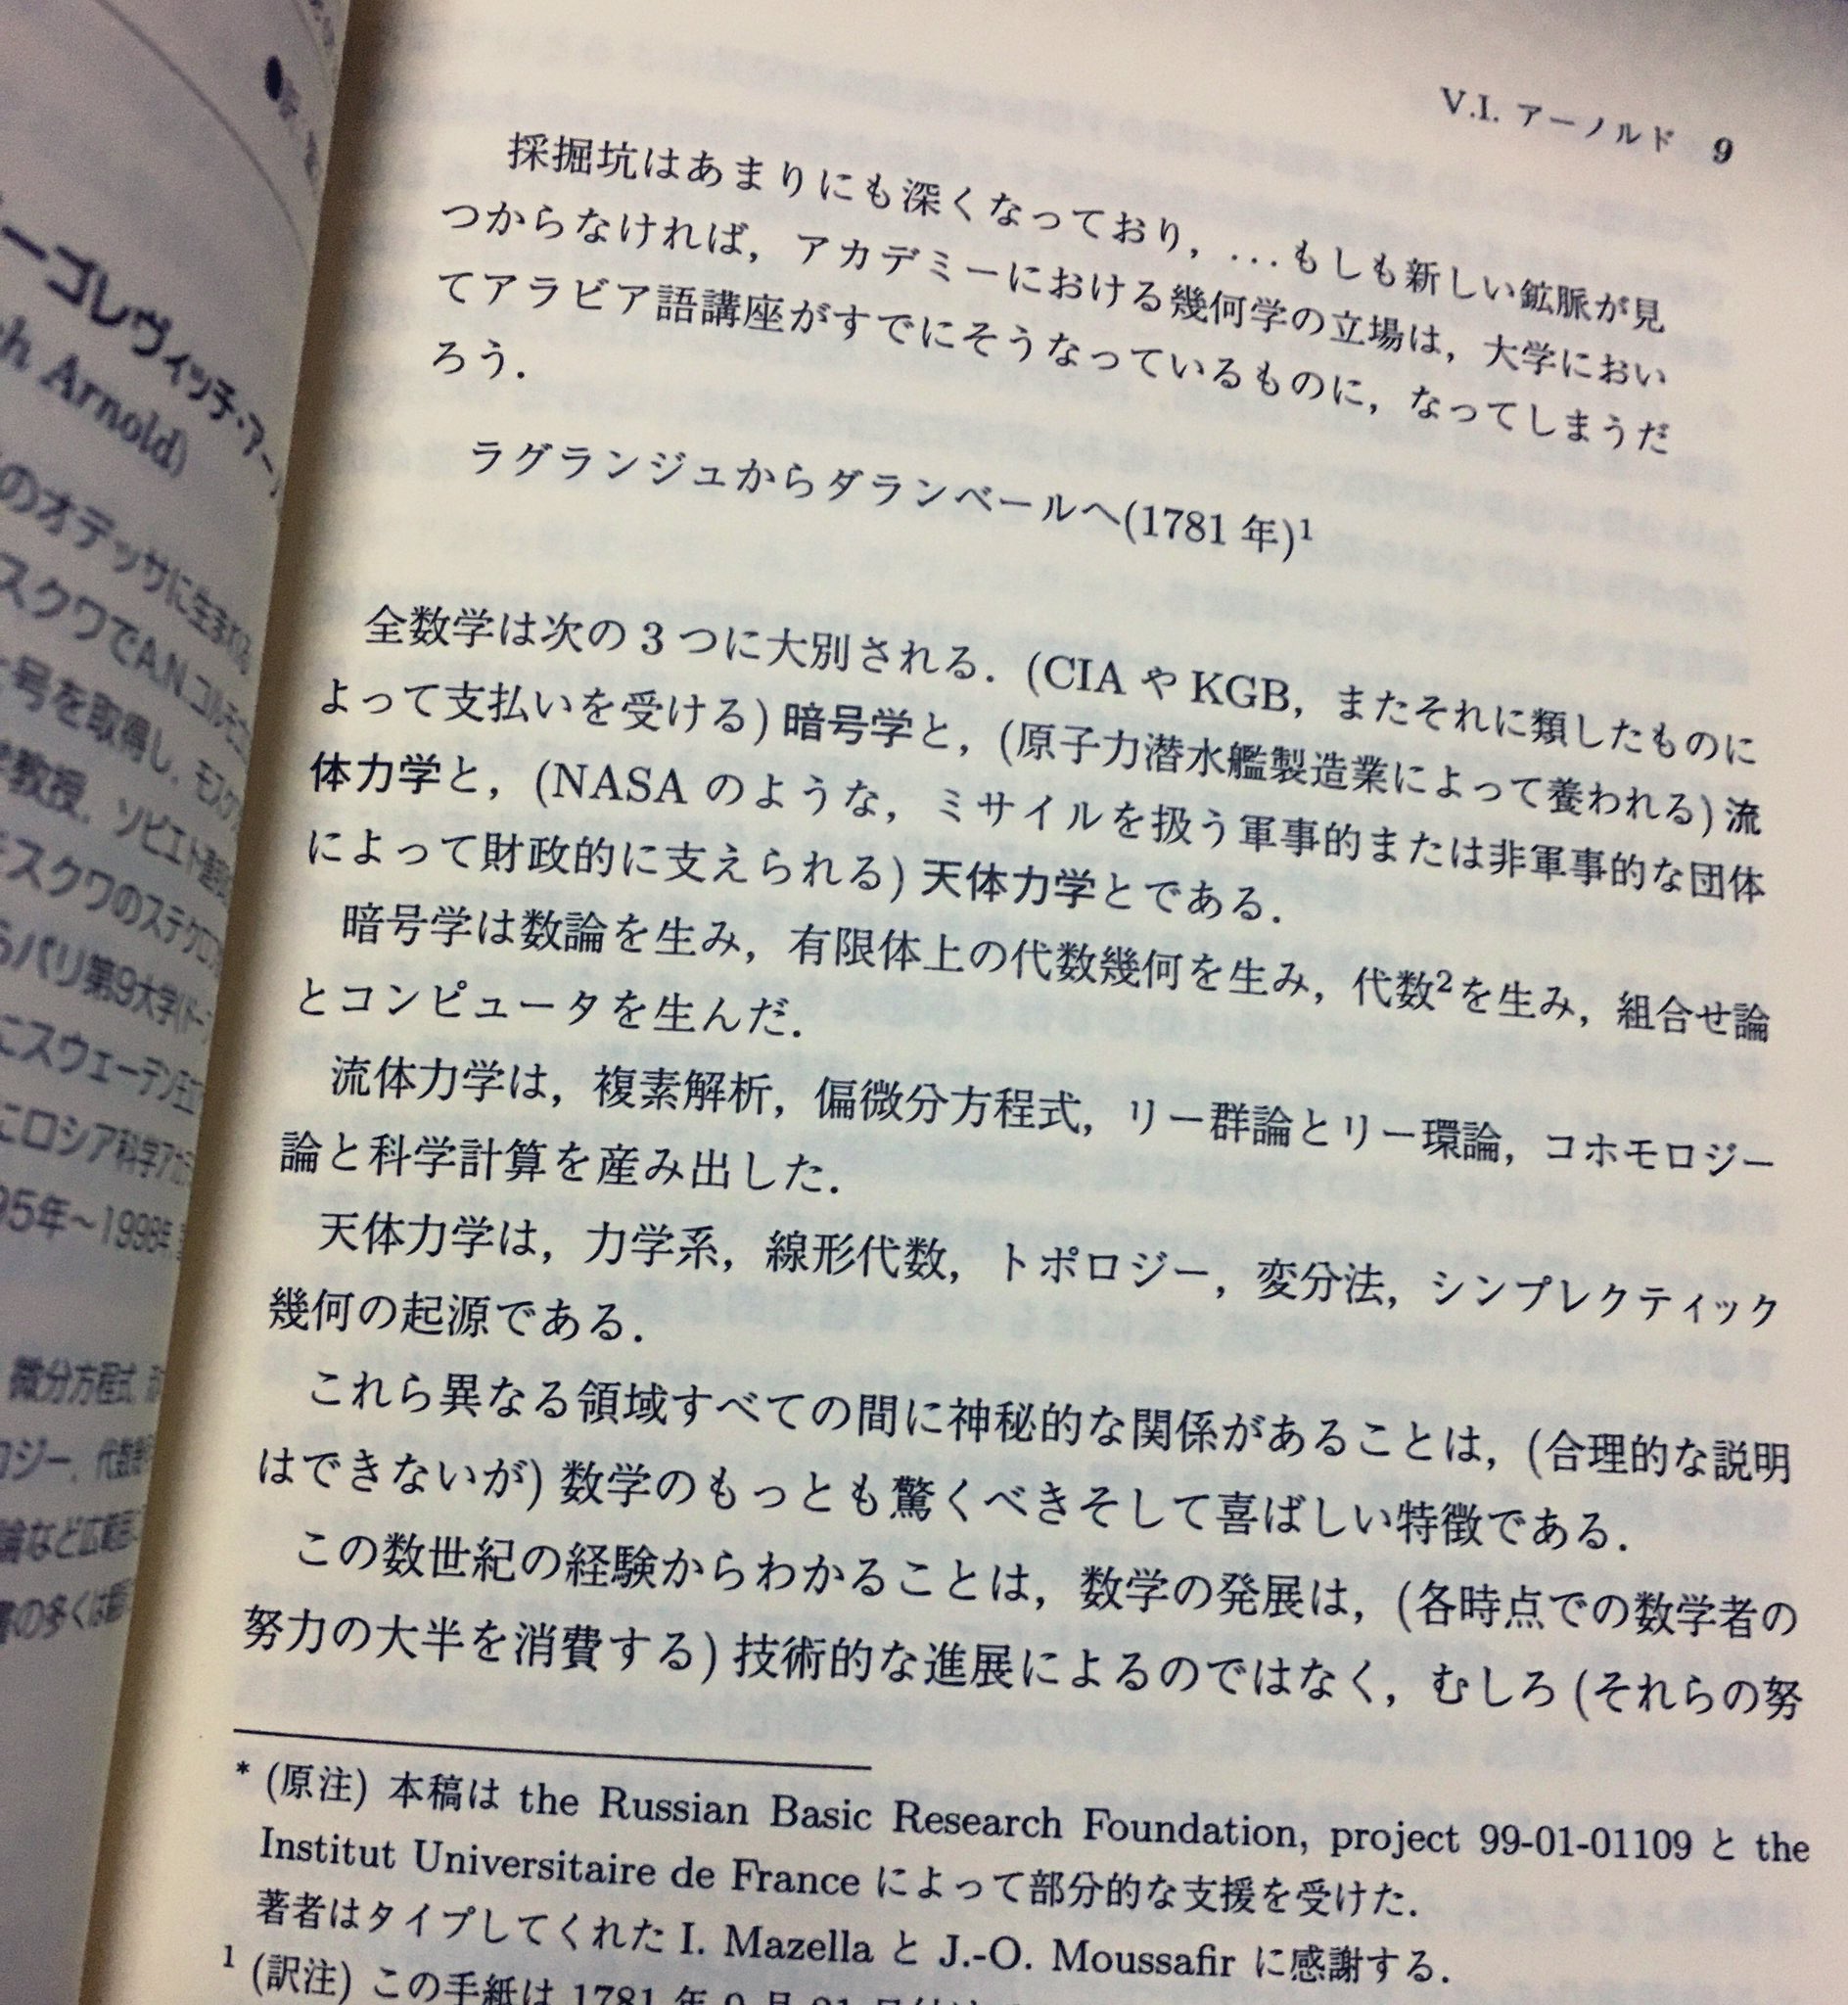 ーゴレヴィッチ・アー
h Arnold)
のオデッサに生まれる
スクワでA.N.コルモゴ
号を取得し，モスクワ
教授，ソビエト
モスクワのステクロフ
らパリ第9大学(ドー
にスウェーデン王
にロシア科学アカデ
95年～1998年
微分方程式
ロジー，代数
論など広範囲に
の多くは
V.I. アーノルド 9
採掘坑はあまりにも深くなっており，…もしも新しい鉱脈が見
つからなければ，アカデミーにおける幾何学の立場は，大学におい
てアラビア語講座がすでにそうなっているものに，なってしまうだ
ろう．
ラグランジュからダランベールへ(1781 年)¹
全数学は次の 3 つに大別される．(CIA や KGB，またそれに類したものに
よって支払いを受ける) 暗号学と，(原子力潜水艦製造業によって養われる) 流
体力学と，(NASA のような，ミサイルを扱う軍事的または非軍事的な団体
によって財政的に支えられる) 天体力学とである．
暗号学は数論を生み，有限体上の代数幾何を生み，代数²を生み，組合せ論
とコンピュータを生んだ．
流体力学は，複素解析，偏微分方程式，リー群論とリー環論，コホモロジー
論と科学計算を産み出した．
天体力学は，力学系，線形代数，トポロジー，変分法，シンプレクティック
幾何の起源である．
これら異なる領域すべての間に神秘的な関係があることは，(合理的な説明
はできないが) 数学のもっとも驚くべきそして喜ばしい特徴である．
この数世紀の経験からわかることは，数学の発展は，(各時点での数学者の
努力の大半を消費する) 技術的な進展によるのではなく，むしろ (それらの努
* (原注) 本稿は the Russian Basic Research Foundation, project 99-01-01109 と the
Institut Universitaire de France によって部分的な支援を受けた．
著者はタイプしてくれた I. Mazella と J.-O. Moussafir に感謝する．
¹ (訳注) この手紙は 1781 年 9 月 21 日付